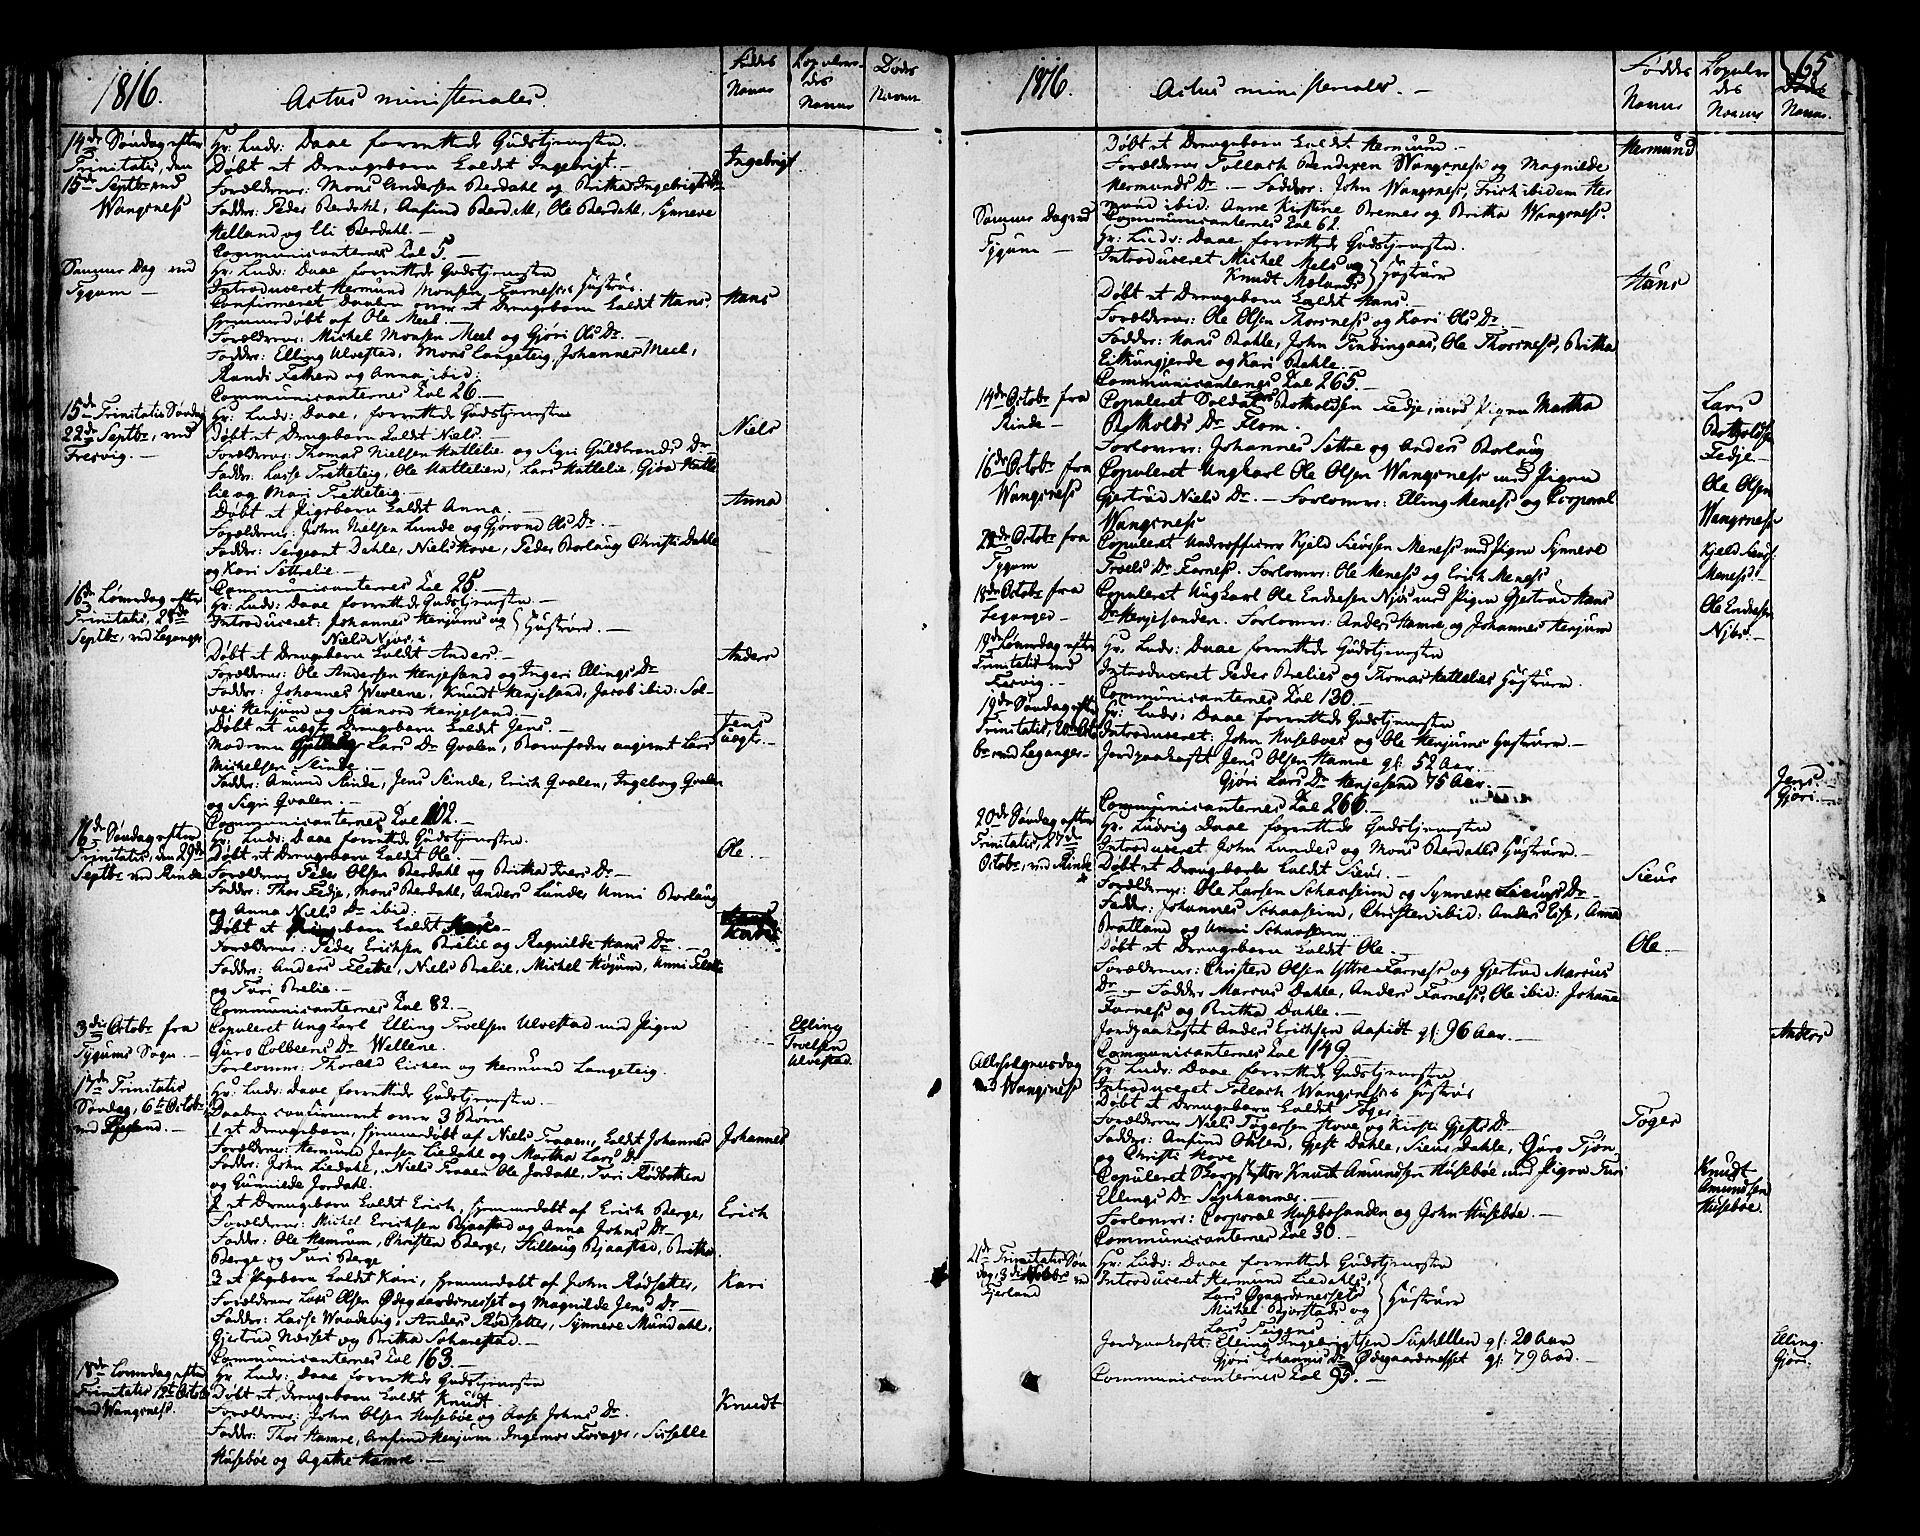 1816.
Actus ministeriales.
Fødde Navne
Copuleredes Navne
Døde Navne
14de Søndag efter Trinitatis, den 15de Septbr ved Wangsness
Hr. Ludv: Daae forrettede Gudstjenesten.
Døbt et Drengebarn kaldet Ingebrigt.
Ingebrigt
Forældrene: Mons Andersen Berdahl og Britha Ingebrigts Dr
Faddr: Peder Berdahl, Anfind Berdahl, Ole Berdahl, Synneve
Helland og Eli Berdahl.
Communicanternes Tal 5.
Samme Dag ved Tygum
Hr. Ludv: Daae forrettede Gudstjenesten
Introduceret Hermund Monsen Farness's Hustrue.
Confirmeret Daaben over et Drengebarn kaldet Hans,
Hans
hjemmedøbt af Ole Meel.
Forældrene: Michel Monsen Meel og Gjøri Ols Dr
Faddr: Elling Ulvestad, Mons Langeteig, Johannes Meel,
Randi Fethen og Anna ibid:
Communicanternes Tal 26.
15de Trinitatis Søndag 22de Septbr, ved Fresvig.
Hr: Ludv: Daae, forrettede Gudstjenesten
Døbt et Drengebarn kaldet Niels.
Niels
Forældrene: Thomas Nielsen Hattelie og Sigri Guldbrands Dr
Faddr: Lasse Fretteteig, Ole Hattelien, Lars Hattelie, Gjøri Hatte
lie og Mari Fretteteig
Døbt et Pigebarn kaldet Anna.
Anna
Forældrene: John Nielsen Lunde og Gjorond Ols Dr
Faddr: Sergeant Dahle, Niels Hove, Peder Borlaug Christi Dahle
og Kari Settrelie.
Communicanternes Tal 25.
16de Løverdag efter Trinitatis, 28de Septbr, ved Leganger
Hr: Ludv: Daae forrettede Gudstjenesten
Introduceret: Johannes Henjums og
Niels Njøs's
Hustruer.
Døbt et Drengebarn kaldet Anders.
Anders
Forældrene: Ole Andersen Henjesand og Ingeri Ellings Dr
Faddr: Johannes Wevlene, Knudt Henjesand, Jacob ibid: Sol-
vei Henjum og Henjesand.
Døbt et uægte Drengebarn kaldet Jens.
Jens uægt.
Moderen Lars Dr Qvalen, Barnefader angivet Lars
Michelsen Rinde.
Faddr: Amund Rinde, Jens Rinde, Erich Qvalen, Ingeborg Qvalen
og Sigri Qvalen.
Communicanternes Tal 102.
16de Søndag efter Trinitatis, den 29de Septbr ved Rinde
Hr: Ludv: Daae forrettede Gudstjenesten.
Døbt et Drengebarn kaldet Ole.
Ole.
Forældrene Peder Olsen Berdahl og Britha Ivers Dr
Faddr: Thor Fedje, Mons Berdahl, Anders Lunde, Anni Borlaug
og Anna Niels Dr ibid:
Døbt et barn kaldet
Forældrene: Peder Erichsen Brelie og Ragnilde Hans Dr.
Faddr: Anders Flethe, Niels Brelie, Michel Højum, Anni Flethe
og Turi Brelie.
Communicanternes Tal 82.
3die Octobr fra Tygums Sogn.
Copuleret Ungkarl Elling Troelsen Ulvestad med Pigen
Elling Troelsen Ulvestad.
Guro Colbeens Dr Wellene.
Forlovere: Thorkild Eichen og Hermund Langeteig.
17de Trinitatis Søndag, 6te Octobr ved Fjerland.
Hr: Ludv: Daae forrettede Gudstjenesten.
Daaben confirmeret over 3 Børn
1 et Drengebarn, hjemmedøbt af Niels Traaen, kaldt Johannes
Johannes
Forældrene: Hermund Jensen Liedahl og Martha Lars Dr
Faddr: John Liedahl, Niels Traaen Ole Jordahl, Turi Rødbotten
og Gunnilde Jordahl.
2 et Drengebarn kaldet Erich, hjemmedøbt af Erich Berge,
Erich
Forældrene: Michel Erichsen Bjaastad og Anna Johns Dr
Faddr: Ole Hamrum, Christen Berge, Stillaug Bjaastad, Britha
Berge og Turi Berge
3 et Pigebarn kaldet Kari, hjemmedøbt af John Rødsetter,
Kari
Forældrene Lars Olsen Ødegaardsnesset og Magnilde Jens Dr
Faddr: Lasse Waadevig, Anders Rødsetter, Synneve Mundahl,
Gjertrud Nesset og Britha Solvarestad.
Communicanternes Tal 163.
18de Løverdag efter Trinitatis 12te Octobr ved Wangsness.
Hr: Ludv: Daae forrettede Gudstjenesten
Døbt et Drengebarn kaldet Knudt.
Knudt
Forældrene: John Olsen Husebøe og Aase Johns Dr.
Faddr: Thor Hamre, Anfind Henjum, Ingemor Forager, Siselle
Husebøe og Agathe Hamre.
1816.
Actus ministeriales.
Fødde Navne
Copuleredes Navne
Døde Navne
65
Døbt et Drengebarn kaldet Hermund
Hermund
Forældrene Tollach Wangsness og Magnilde
Hermunds Dr. Faddr: John Wangsness, Erich ibidem Her
mund ibid: Anne Kirstine Bremer og Britha Wangsness.
Communicanternes Tal 62.
Samme Dag ved Tygum
Hr: Ludv: Daae forrettede Gudstjenesten.
Introduceret Michel Mels og
Knudt Mælands
Hustruer
Døbt et Drengebarn kaldet Hans.
Hans
Forældrene: Ole Olsen Thorsness og Kari Ols Dr
Faddr: Hans Dahle, John Findingaas, Ole Thorsness, Britha
Eithungjerde og Kari Dahle.
Communicanternes Tal 265.
14de Octobr fra Rinde.
Copuleret Soldat Lars Botholdsen Fedje, med Pigen Martha
Lars Botholdsen Fedje
Botholds Dr Flom.
Forlovere: Johannes Sette og Anders Borlaug
16de Octobr fra Wangsness
Copuleret Ungkarl Ole Olsen Wangsness med Pigen
Ole Olsen Wangsness
Gjertrud Niels Dr. Forlovere: Elling Meness og Corporal
Wangsness
Octobr fra Tygum
Copuleret Underofficeer Kjeld Siursen Meness med Pigen Synneve
Kjeld Siurs. Meness.
Troels Dr Farness. Forlovere: Ole Meness og Erich Meness
18de Octobr fra Leganger
Copuleret Ungkarl Ole Endresen Njøs med Pigen Gjertrud Hans
Ole Endresen Njøs.
Dr Henjesanden. Forlovere: Anders Hamre og Johannes Henjum
19de Løverdag efter Trinitatis ved Fresvig.
Hr: Ludv: Daae forrettede Gudstjenesten
Introduceret Peder Brelies og Thomas Hattelies Hustruer.
Communicanternes Tal 130.
19de Søndag efter Trinitatis, 20de Octobr ved Leganger
Hr: Ludv: Daae forrettede Gudstjenesten
Introduceret: John Huseboes og Ole Henjums Hustruer.
Jordpaakastet Jens Olsen Hamre gl: 52 Aar.
Jens.
Gjøri Lars Dr Henjesand 75 Aar.
Gjøri.
Communicanternes Tal 266.
20de Søndag efter Trinitatis, 27de Octobr, ved Rinde
Hr: Ludvig Daae forrettede Gudstjenesten
Introduceret John Lundes og Mons Berdahls Hustruer.
Døbt et Drengebarn kaldet Siur.
Siur
Forældrene: Ole Larsen Schaasheim og Synneve Siurs Dr
Faddr: Johannes Schaasheim, Christen ibid: Anders Eise, Anna
Bratland og Anni Schaasheim.
Døbt et Drengebarn kaldet Ole.
Ole.
Forældrene: Christen Olsen Yttre Farness og Gjertrud Marcus
Dr. Faddr Marcus Dahle, Anders Farness, Ole ibid: Johanna
Farness og Britha Dahle.
Jordpaakastet Anders Erichsen gl: 96 Aar.
Anders
Communicanternes Tal 149.
Allehelgensdag ved Wangsness
Hr: Ludv: Daae forrettede Gudstjenesten
Introduceret Tollach Wangsness's Hustrue
Døbt et Drengebarn kaldet Tøger
Tøger
Forældrene Niels Tøgersen Hove og Kirsti Gjests Dr
Faddr: Anfind Ohlsen, Gjest Dahle, Siur Dahle, Guro Tjøn,
og Christi Hove
Copuleret Skarpskytter Knudt Amundsen Husebøe med Pigen Turi
Knudt Amundsen Husebøe.
Ellings Dr Suphammer.
Forlovere: Corporal Husebøsanden og John Husebøe.
Communicanternes Tal 30.
21de Trinitatis Søndag, 3die Novbr ved Fjerland
Hr: Ludv: Daae forrettede Gudstjenesten
Introduceret Hermund Liedahls,
Lars Øgaardsnessets
Michel Bjorstads og
Lars
Hustruer
Jordpaakast: Elling Ingebrigtsen Suphellen gl: 20 Aar
Elling.
Gjøri Johannis Dr Ødegaardsnesset gl: 79 Aar.
Gjøri
Communicanternes Tal 95.